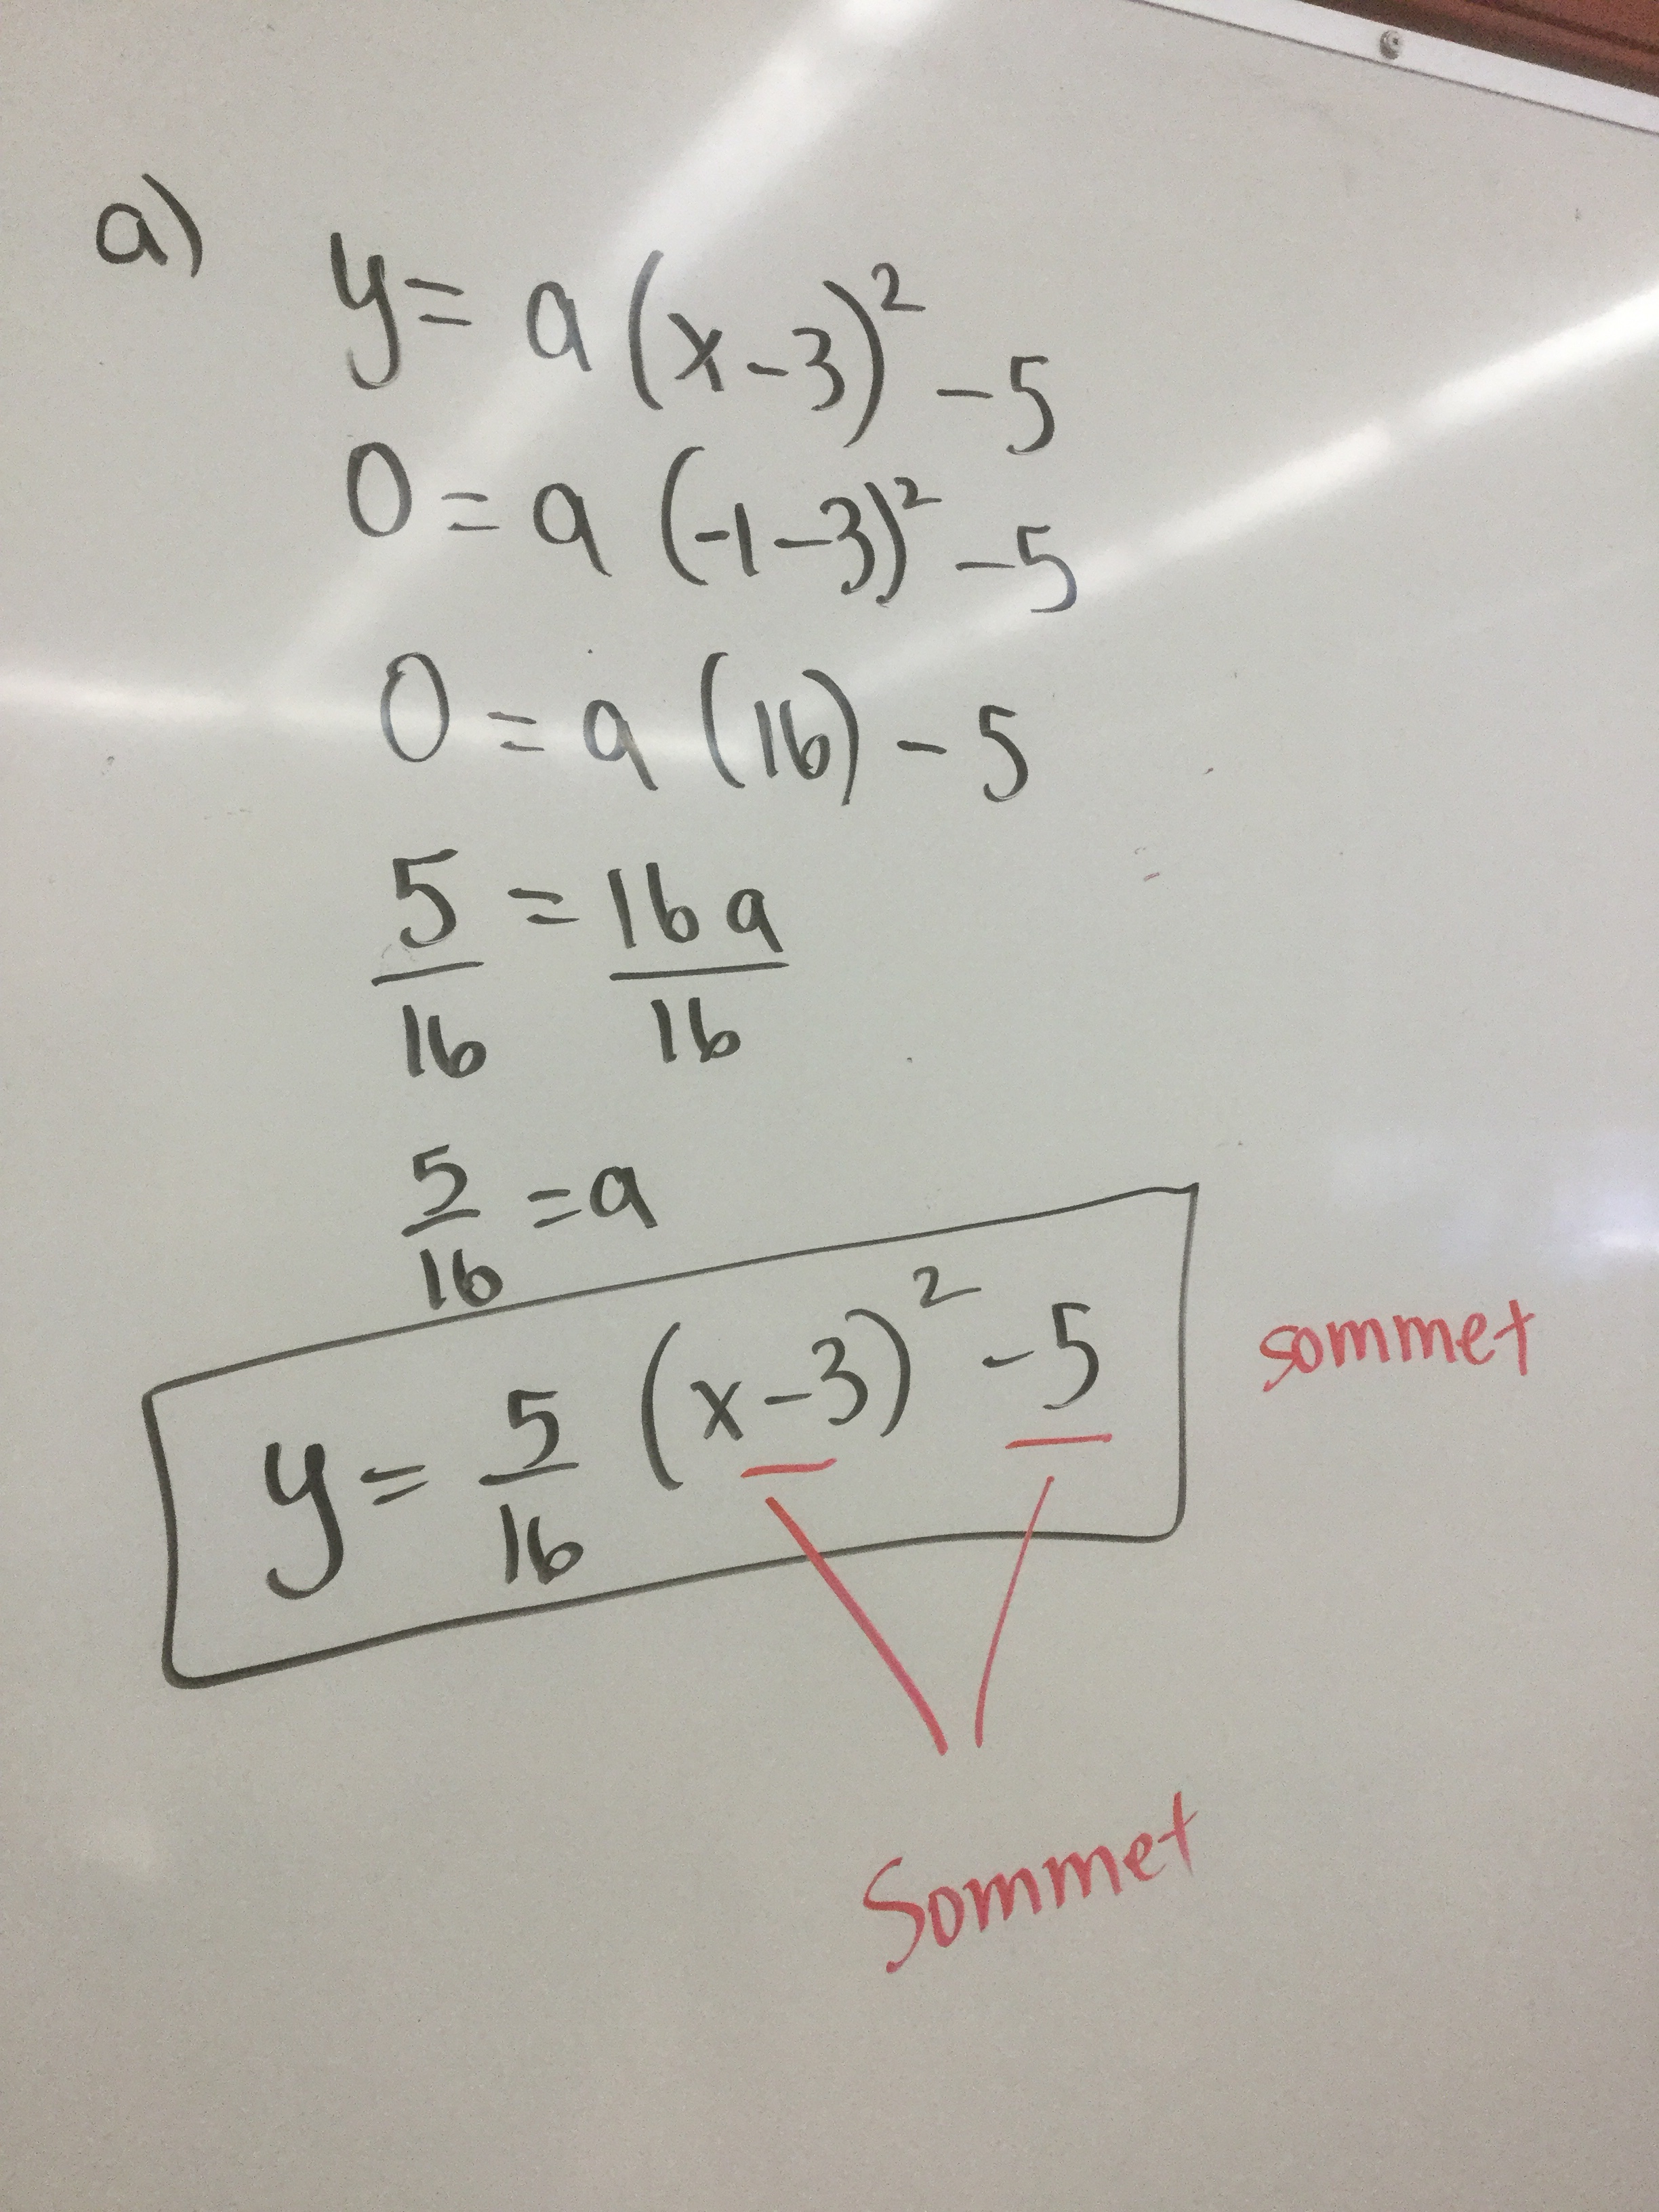 a) y = a (x-3)² - 5
0 = a (-1-3)² - 5
0 = a (16) - 5
5/16 = 16a/16
5/16 = a
y = 5/16 (x-3)² - 5
sommet
Sommet